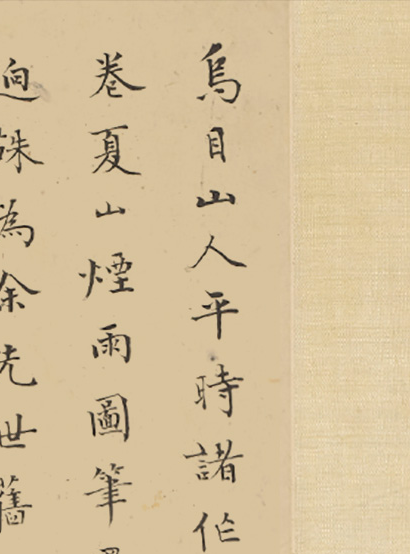 烏目山人平時諸作
卷夏山煙雨圖筆
迥殊為余先世舊